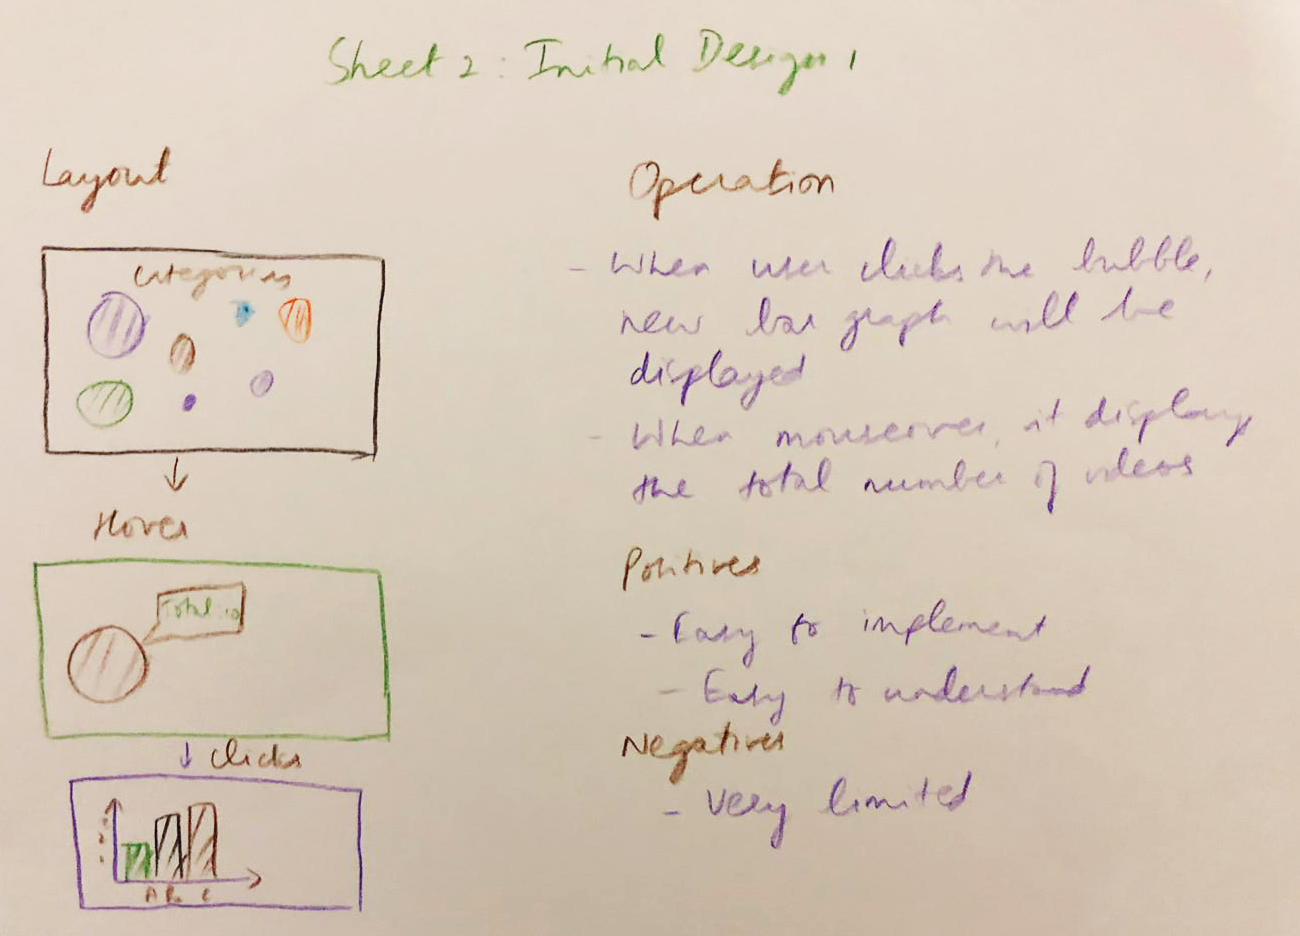 Sheet 2: Initial Design 1
Layout
Categories
Hover
Total: 10
clicks
A B C
Operation
- When user clicks the bubble,
new bar graph will be
displayed
- When mouseover, it displays
the total number of videos
Positives
- Easy to implement
- Easy to understand
Negatives
- Very limited